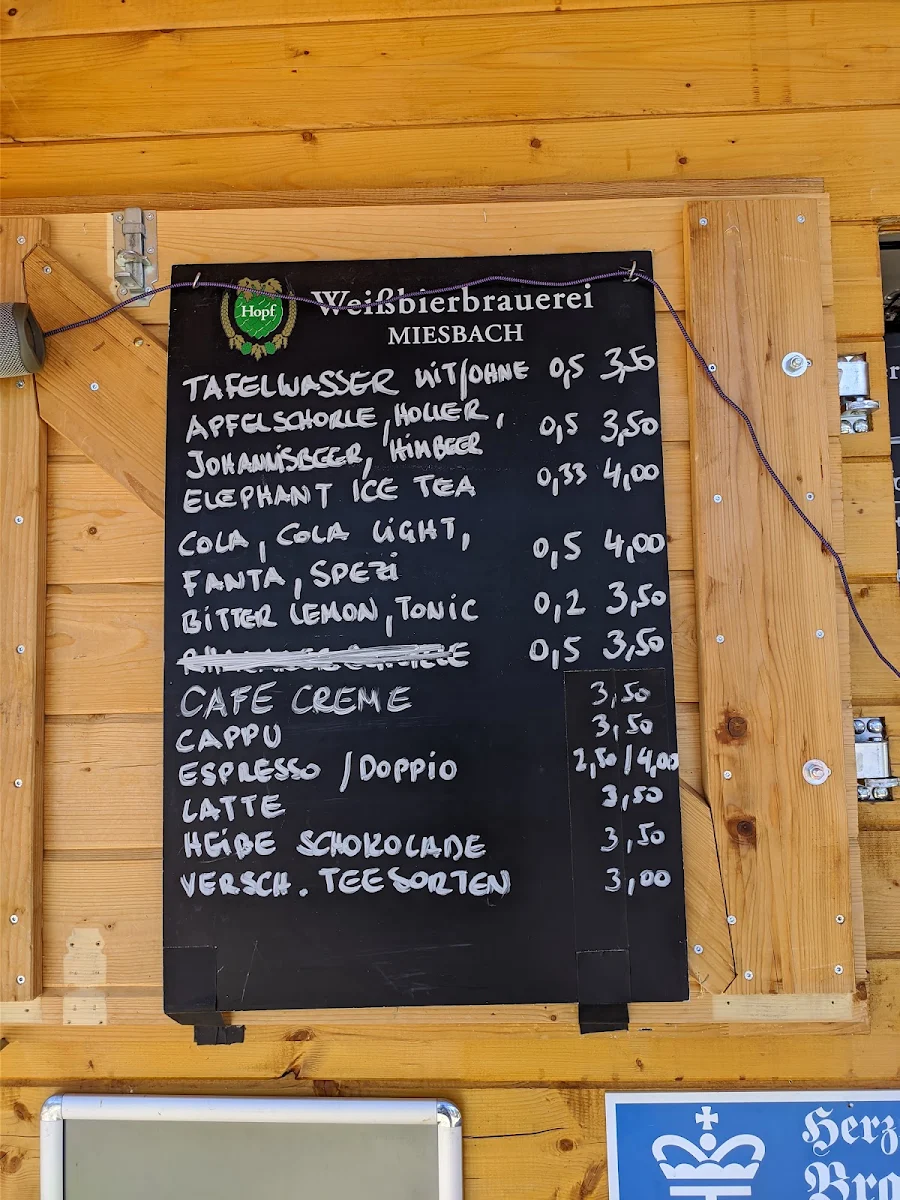 Hopf
Weißbierbrauerei
MIESBACH
TAFELWASSER MIT/OHNE 0,5 3,50
APFELSCHORLE, HOLLER,
JOHANNISBEER, HIMBEER 0,5 3,50
ELEPHANT ICE TEA 0,33 4,00
COLA, COLA LIGHT,
FANTA, SPEZI 0,5 4,00
BITTER LEMON, TONIC 0,2 3,50
0,5 3,50
CAFE CREME 3,50
CAPPU 3,50
ESPRESSO / DOPPIO 2,50 / 4,00
LATTE 3,50
HEIßE SCHOKOLADE 3,50
VERSCH. TEESORTEN 3,00
Herz
Bra